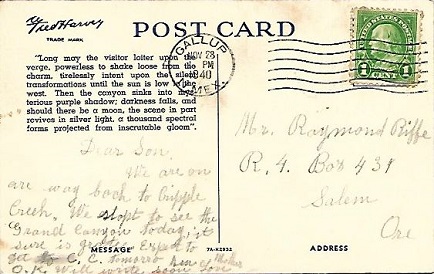 Fred Harvey
TRADE MARK
POST CARD
"Long may the visitor loiter upon the
verge, powerless to shake loose from the
charm, tirelessly intent upon the silent
transformations until the sun is low in the
west. Then the canyon sinks into mys-
terious purple shadow; darkness falls, and
should there be a moon, the scene in part
revives in silver light, a thousand spectral
forms projected from inscrutable gloom".
GALLUP
NOV 28
PM
1940
N. MEX.
UNITED STATES POSTAGE
1 CENT 1
Dear Son.
We are on
are way back to Cripple
Creek. We stopt to see the
Grand Canyon today, it
sure is great. Expect to
get to C. C. tomorro
O.K. Will write soon Love
Mother
MESSAGE
7A-H2932
ADDRESS
Mr. Raymond Riffe
R. 4. Box 431
Salem
Ore